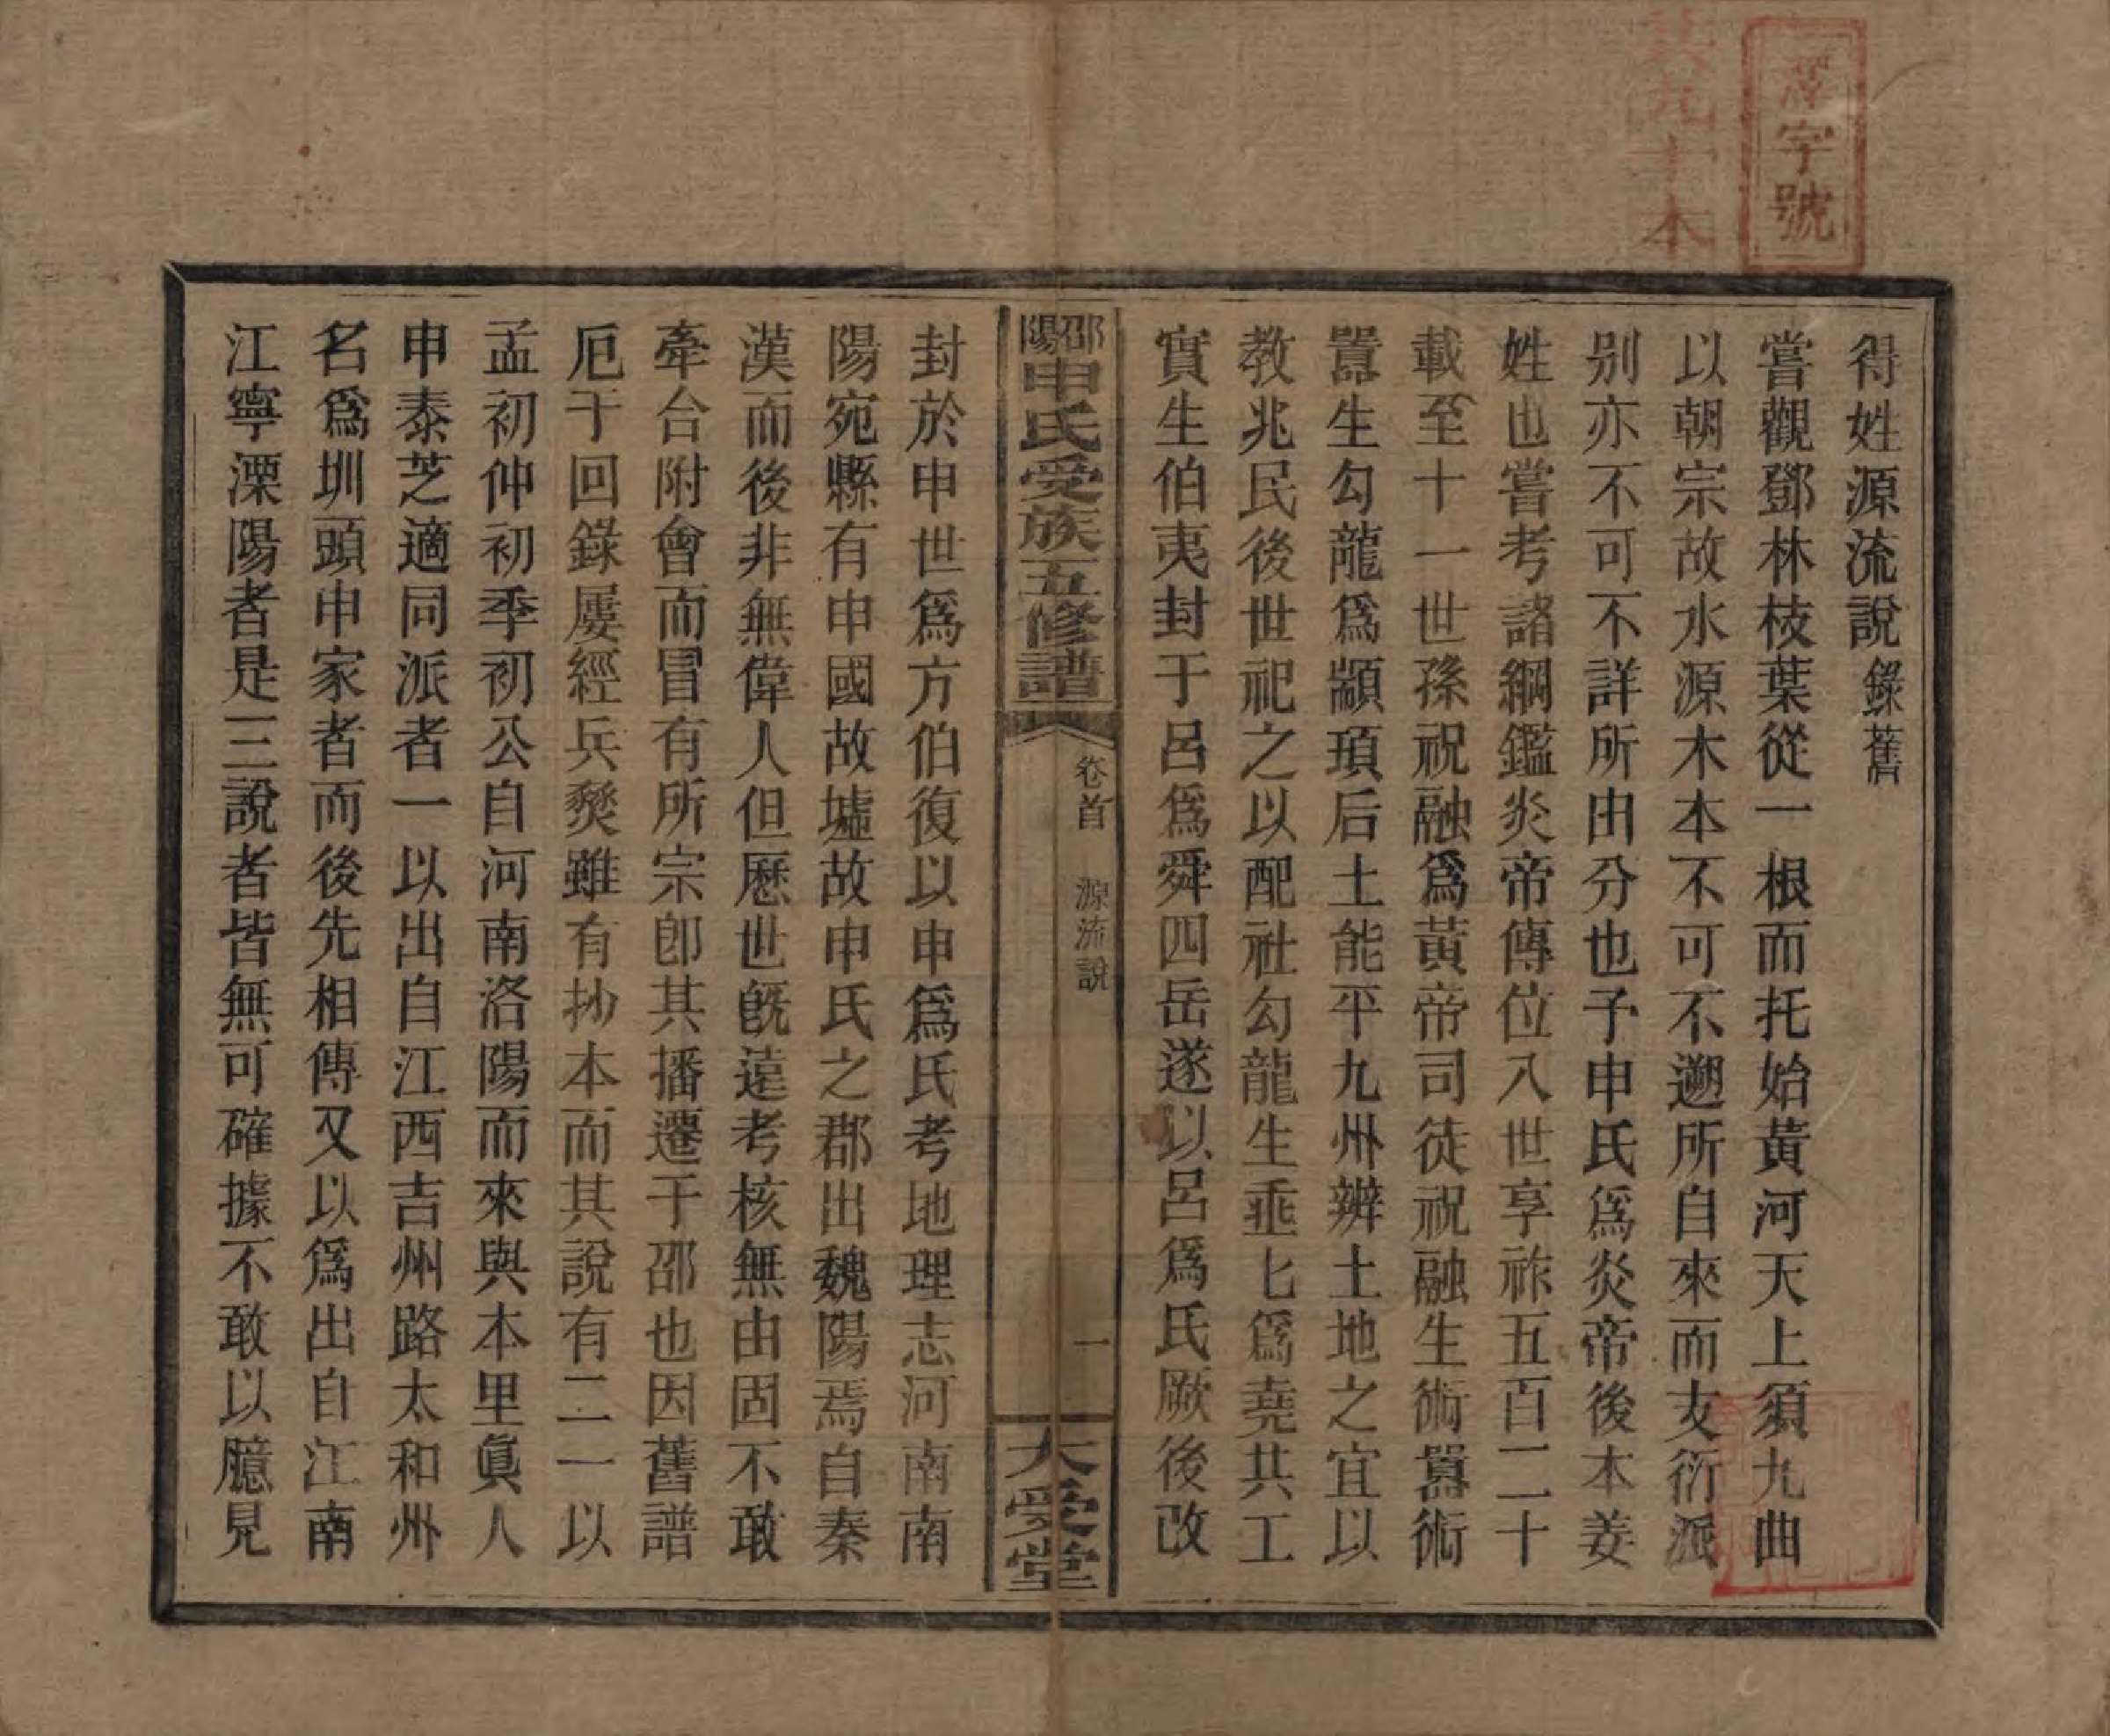 字號
共九十本
得姓源流說 錄舊
嘗觀鄧林枝葉從一根而托始黃河天上須九曲
以朝宗故水源木本不可不遡所自來而支衍派
别亦不可不詳所由分也予申氏爲炎帝後本姜
姓也嘗考諸綱鑑炎帝傳位入世享祚五百二十
載至十一世孫祝融爲黃帝司徒祝融生術嚣術
嚣生勾龍爲顓頊后土能平九州辨土地之宜以
教兆民後世祀之以配社勾龍生垂七爲堯共工
實生伯夷封于呂爲舜四岳遂以呂爲氏厥後改
邵陽申氏受族五修譜
卷首 源流說
一
大受堂
封於申世爲方伯復以申爲氏考地理志河南南
陽宛縣有申國故墟故申氏之郡出魏陽焉自秦
漢而後非無偉人但歷世旣遠考核無由固不敢
牽合附會而冒有所宗卽其播遷于邵也因舊譜
厄于回錄屢經兵燹雖有抄本而其說有二一以
孟初仲初季初公自河南洛陽而來與本里眞人
申泰芝適同派者一以出自江西吉州路太和州
名爲圳頭申家者而後先相傳又以爲出自江南
江寧溧陽者是三說者皆無可確據不敢以臆見